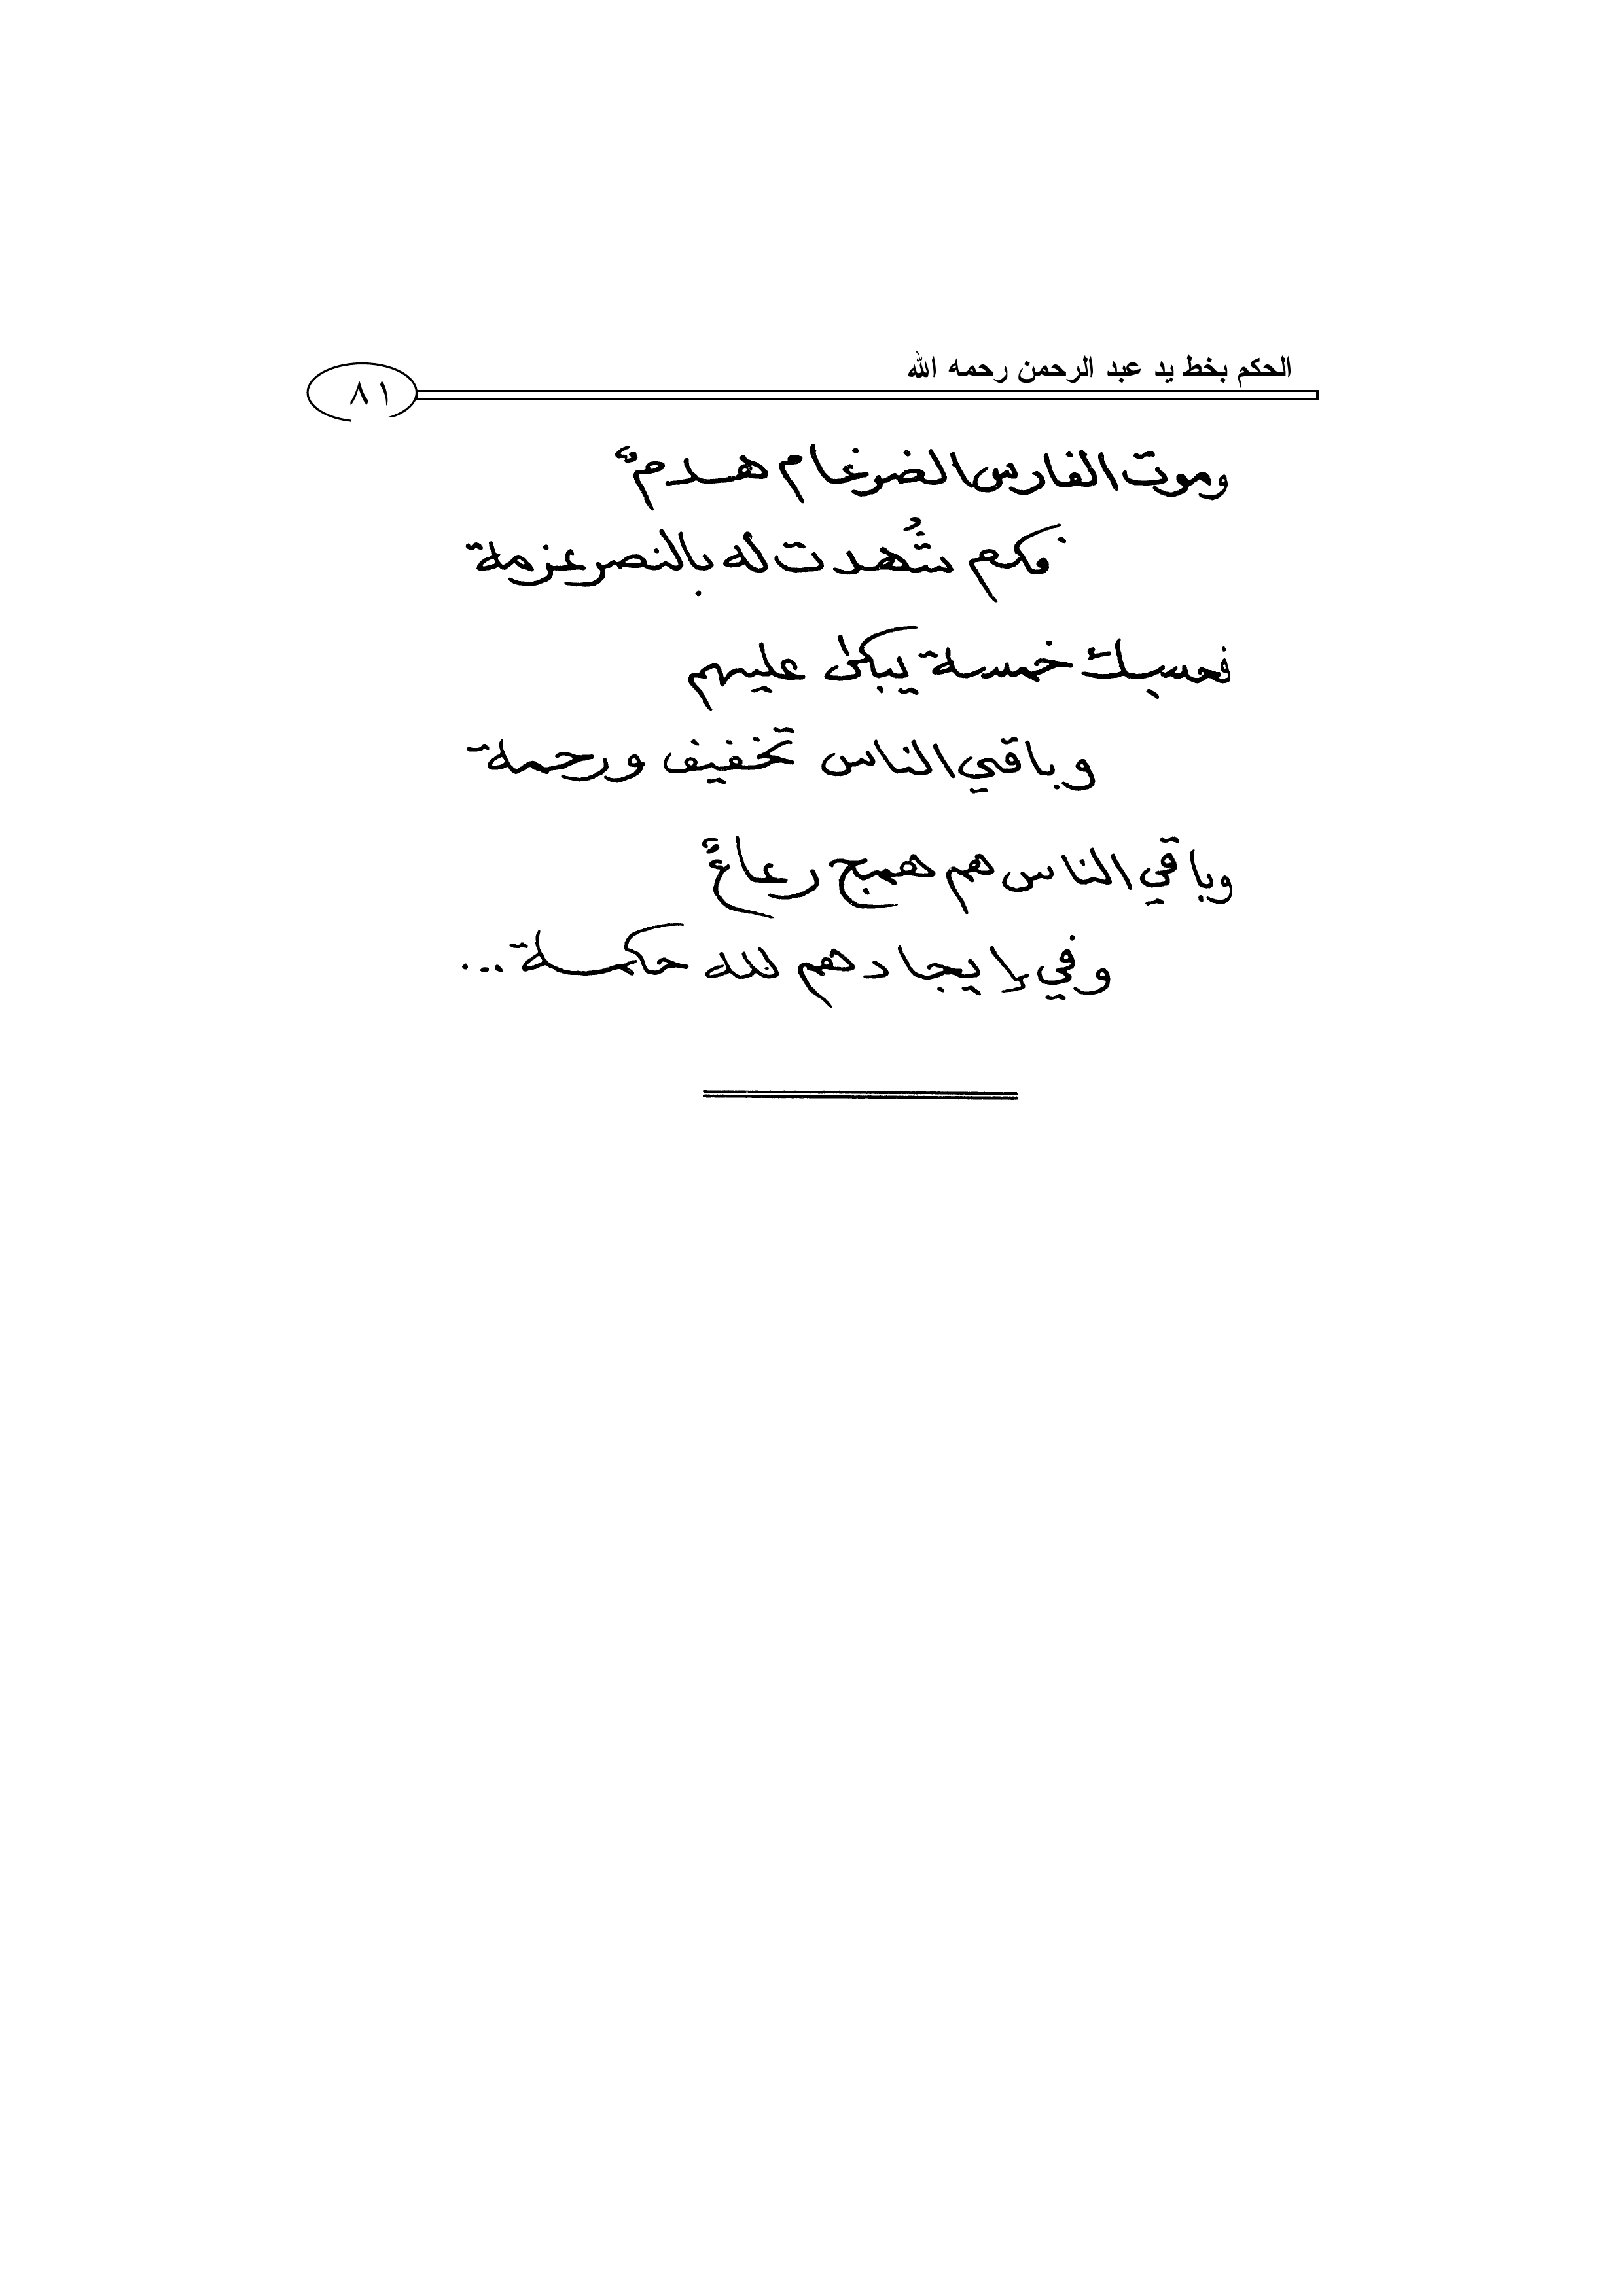 الحكم بخط يد عبد الرحمن رحمه الله
٨١
وموت الفارس الضرغام هدمٌ
فكم شُهدت له بالنصر عزمة
فحسبك خمسة يبكى عليهم
وباقي الناس تخفيف ورحمة
وباقي الناس هم همج رعاعٌ
وفي إيجادهم لله حكمة...